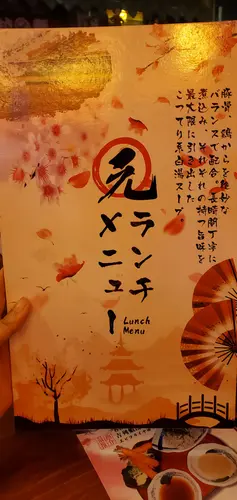 豚骨、鶏がらを絶妙な
バランスで配合、長時間丁寧に
煮込み、それぞれの持つ旨味を
最大限に引き出した
こってり系白湯スープ
元
ランチ
メニュー
Lunch
Menu